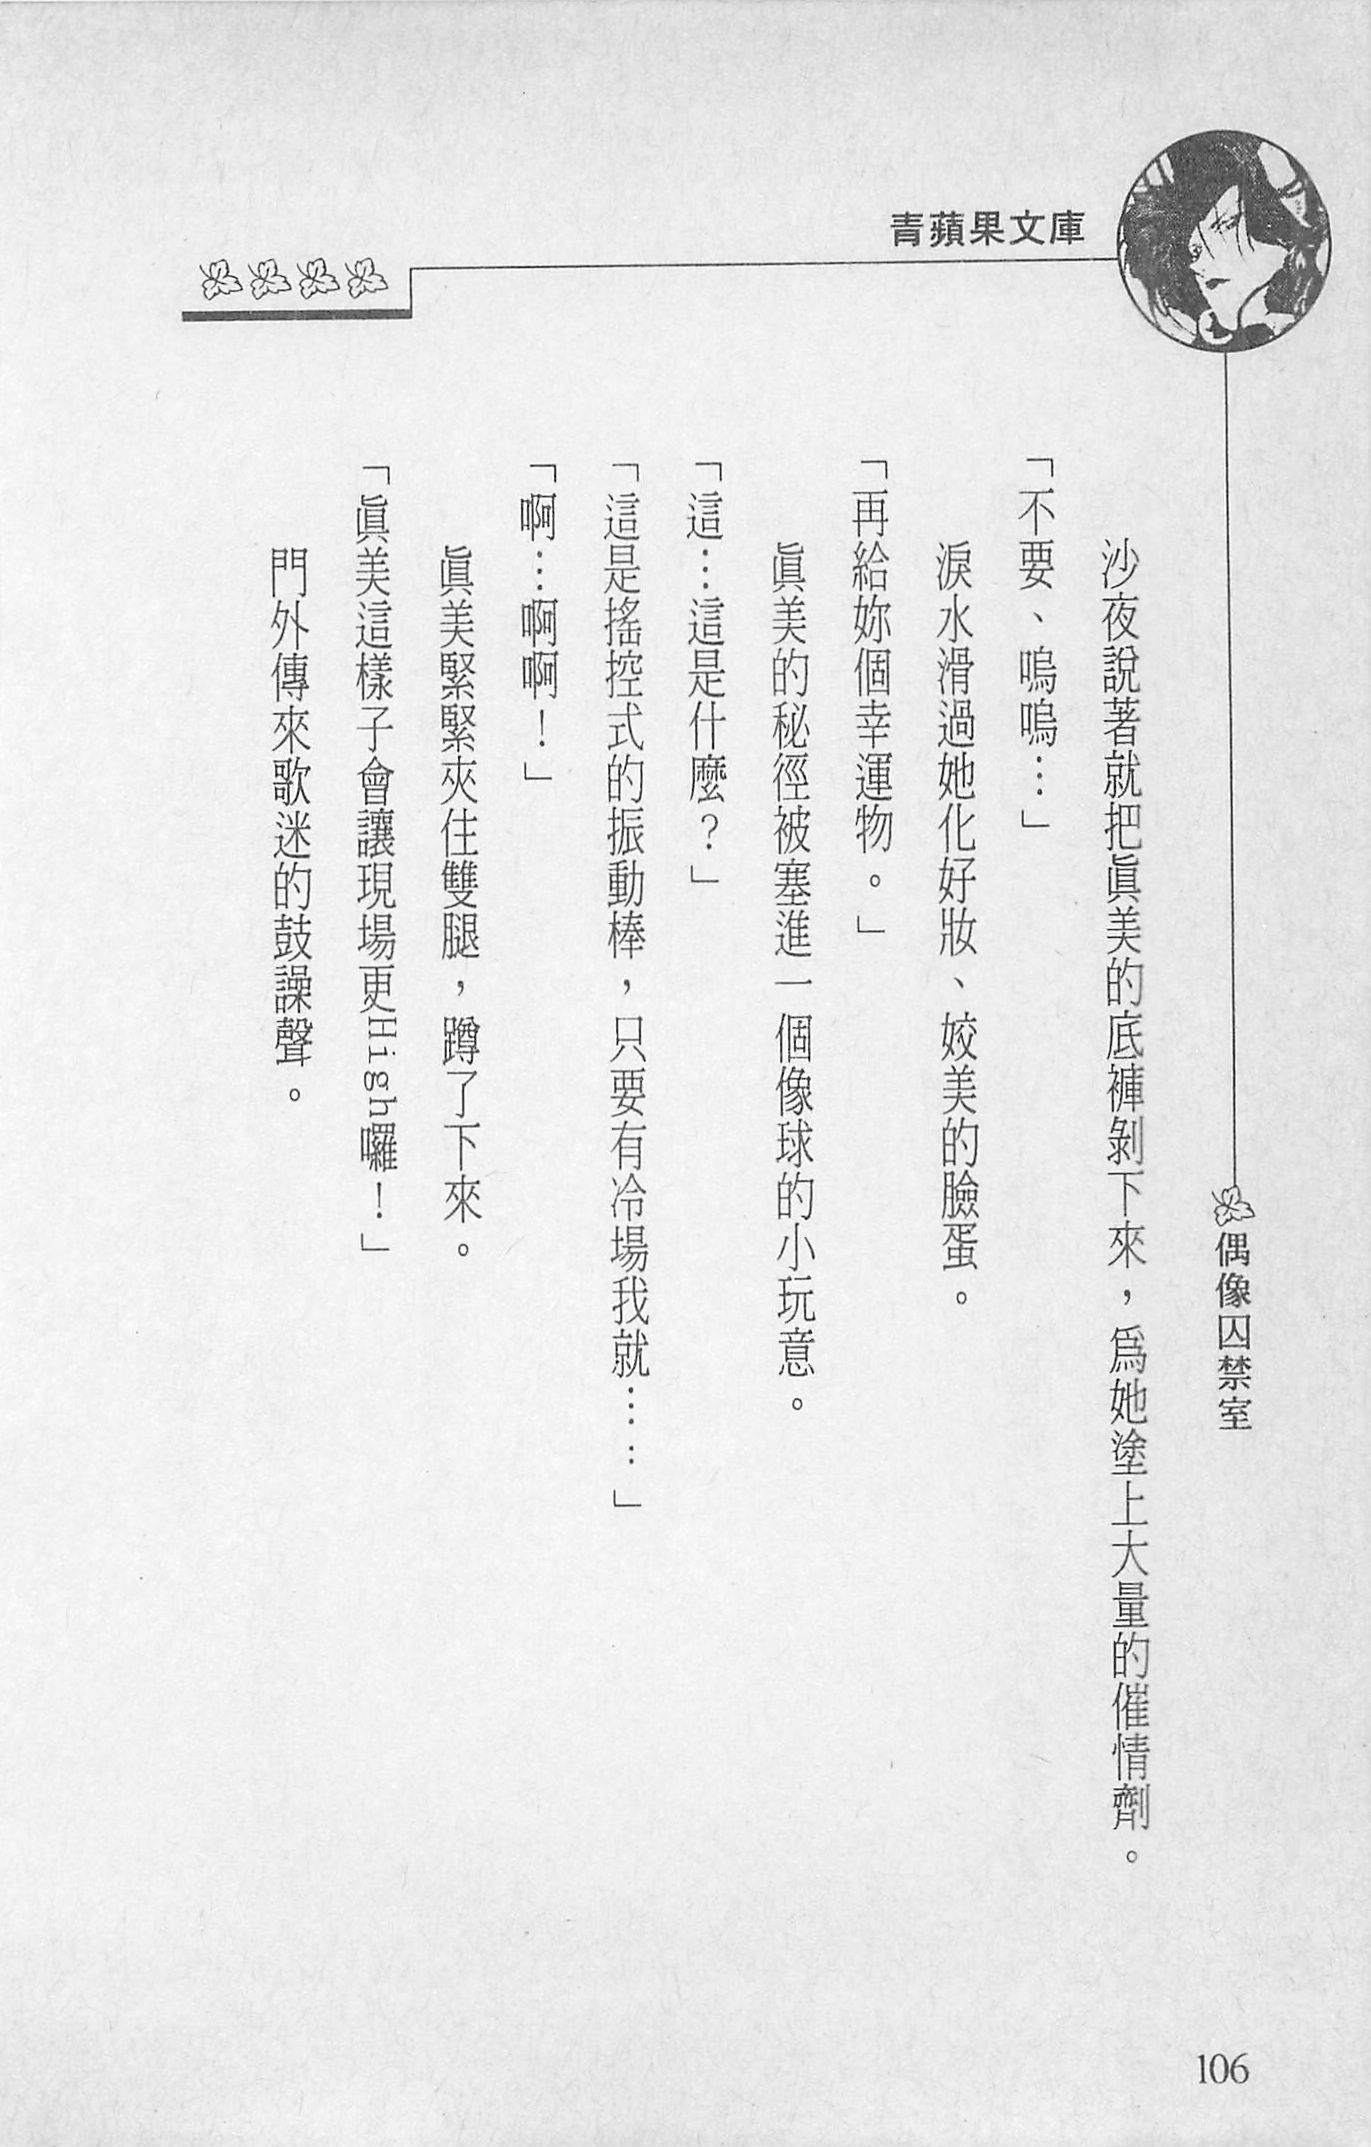 青蘋果文庫
偶像囚禁室
沙夜說著就把眞美的底褲剝下來，爲她塗上大量的催情劑。
「不要、嗚嗚…」
淚水滑過她化好妝、姣美的臉蛋。
「再給妳個幸運物。」
眞美的秘徑被塞進一個像球的小玩意。
「這…這是什麼？」
「這是搖控式的振動棒，只要有冷場我就……」
「啊…啊啊！」
眞美緊緊夾住雙腿，蹲了下來。
「眞美這樣子會讓現場更High囉！」
門外傳來歌迷的鼓譟聲。
106